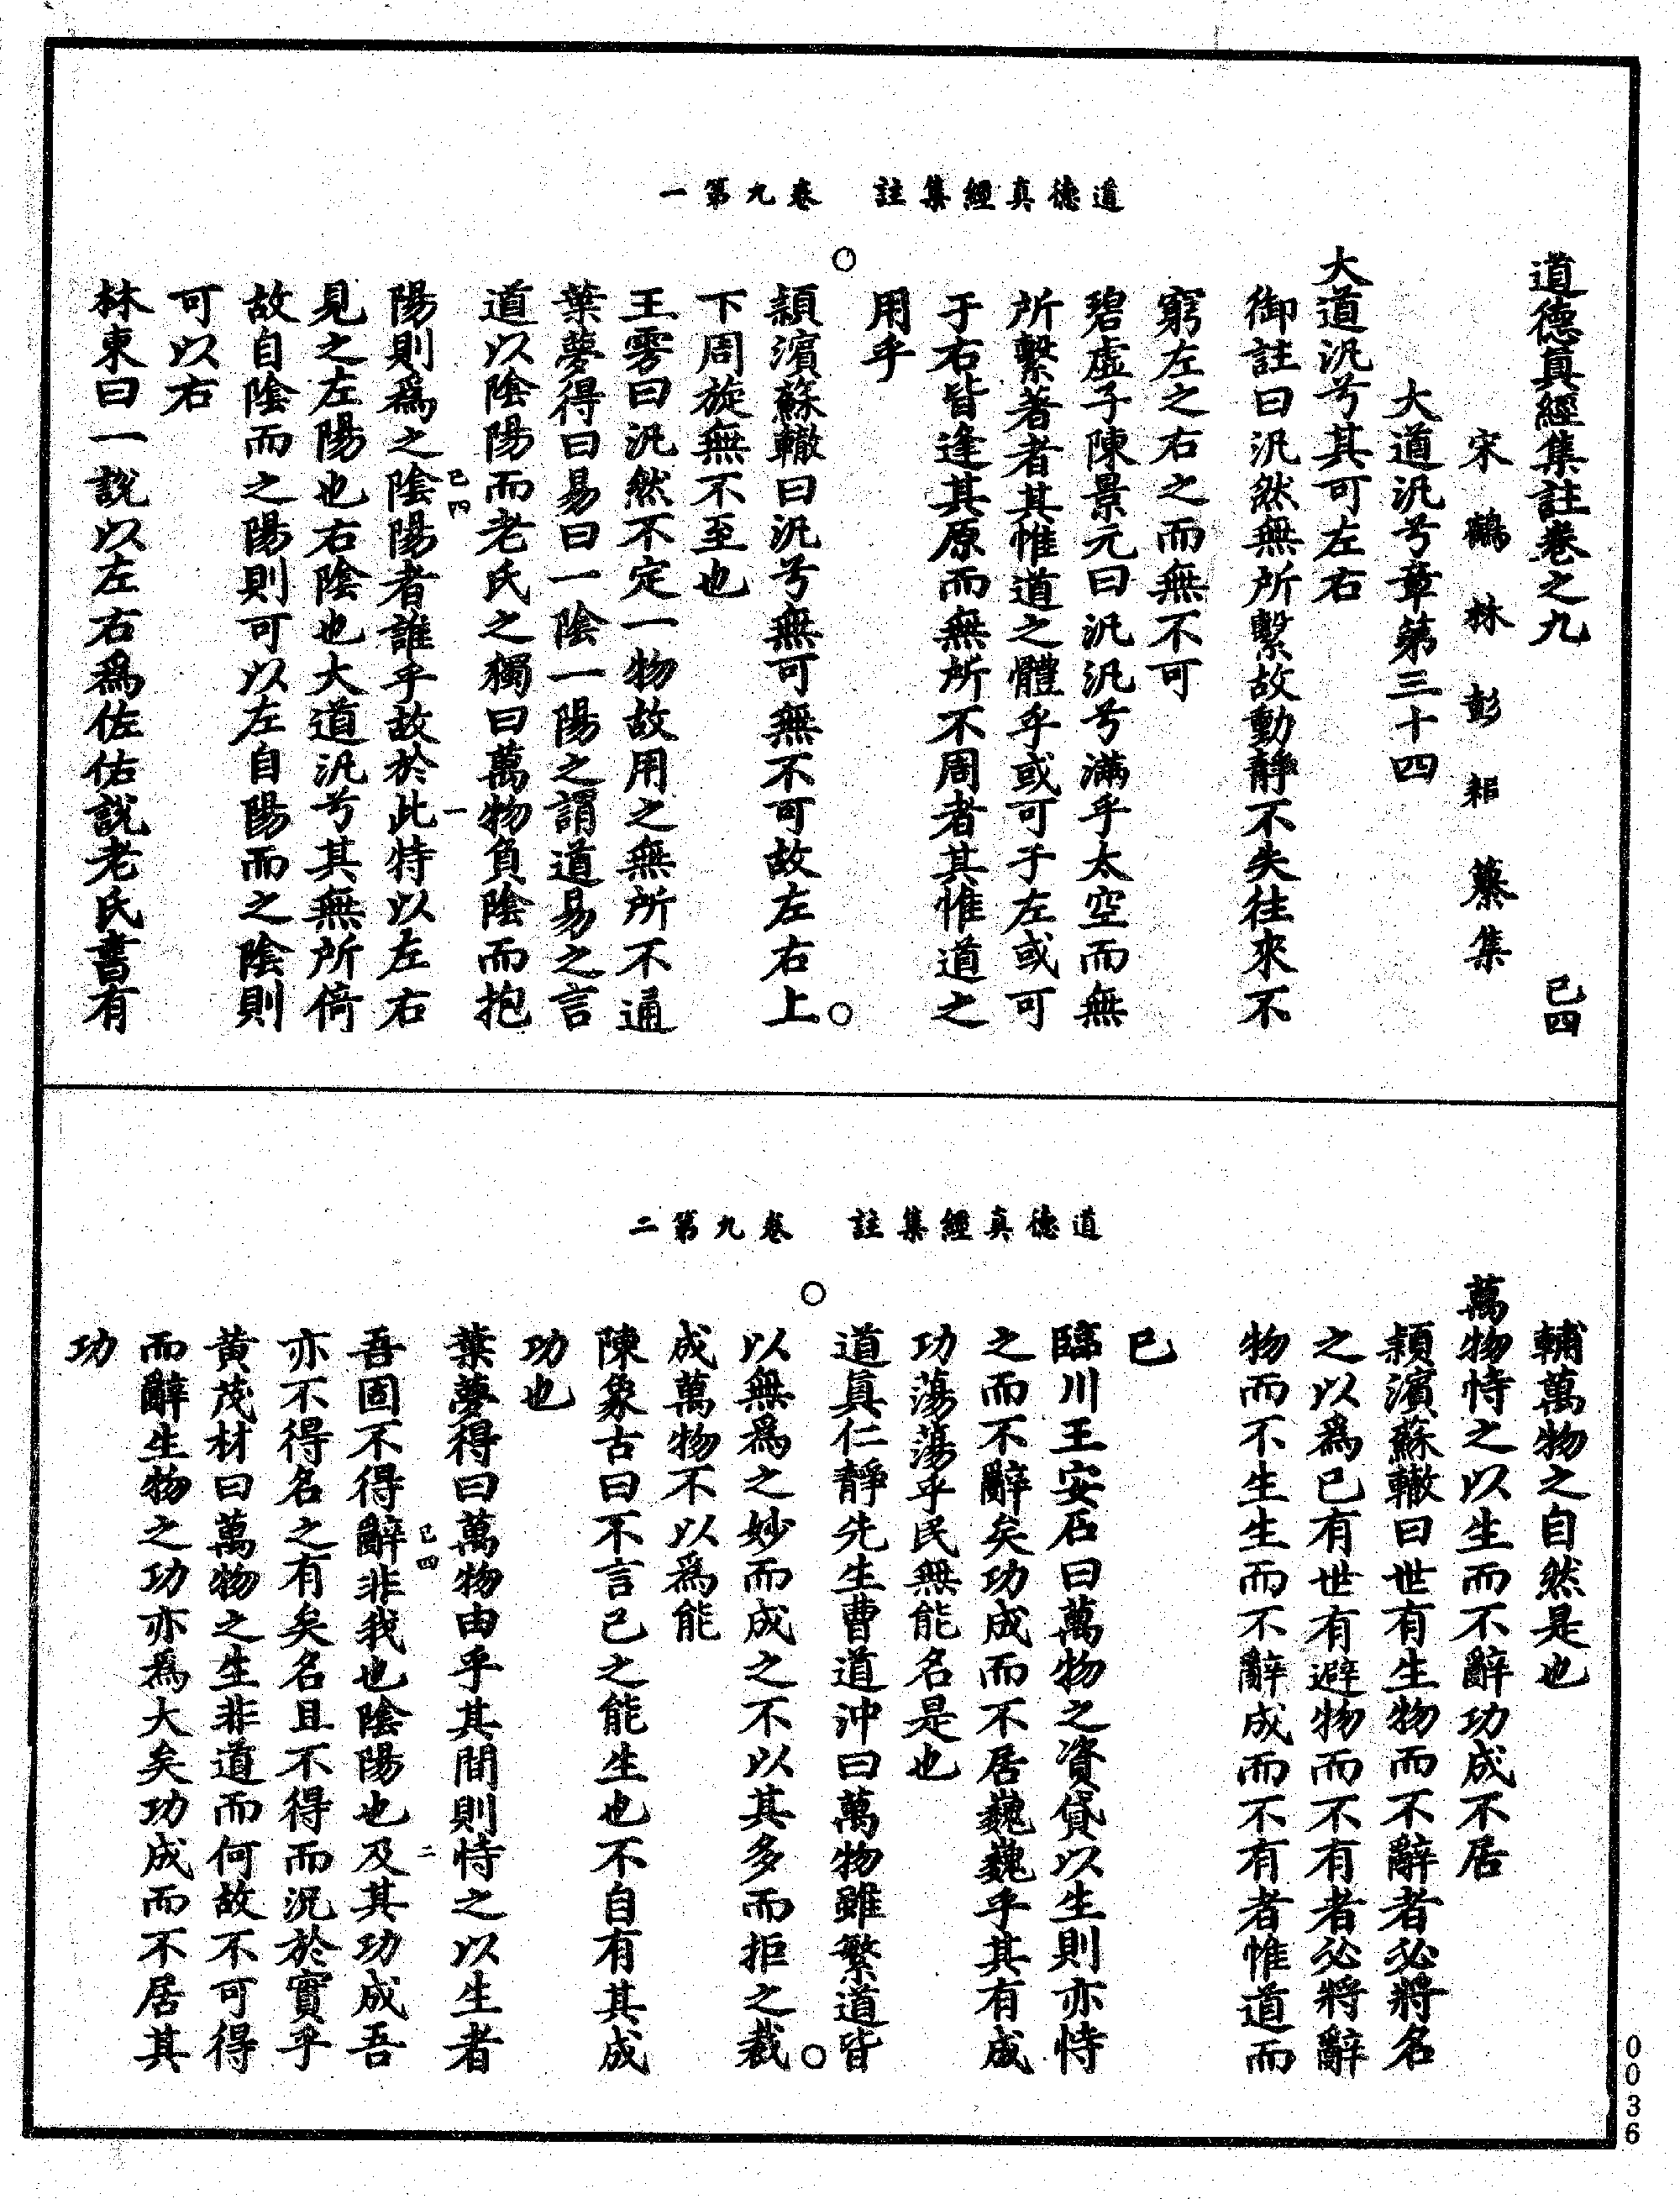 道德真經集註　卷九第一
道德真經集註卷之九　己四
宋鶴林彭耜纂集
大道汎兮章第三十四
大道汎兮其可左右
御註曰汎然無所繫故動靜不失往來不
窮左之右之而無不可
碧虛子陳景元曰汎汎兮滿乎太空而無
所繫著者其惟道之體乎或可于左或可
于右皆逢其原而無所不周者其惟道之
用乎
潁濱蘇轍曰汎兮無可無不可故左右上
下周旋無不至也
王雱曰汎然不定一物故用之無所不通
葉夢得曰易曰一陰一陽之謂道易之言
道以陰陽而老氏之獨曰萬物負陰而抱
己四　一
陽則為之陰陽者誰乎故於此特以左右
見之左陽也右陰也大道汎兮其無所倚
故自陰而之陽則可以左自陽而之陰則
可以右
林東曰一說以左右為佐佑說老氏書有
道德真經集註　卷九第二
輔萬物之自然是也
萬物恃之以生而不辭功成不居
潁濱蘇轍曰世有生物而不辭者必將名
之以為已有世有避物而不有者必將辭
物而不生生而不辭成而不有者惟道而
已
臨川王安石曰萬物之資貸以生則亦恃
之而不辭矣功成而不居巍巍乎其有成
功蕩蕩乎民無能名是也
道真仁靜先生曹道沖曰萬物雖繁道皆
以無為之妙而成之不以其多而拒之裁
成萬物不以為能
陳象古曰不言己之能生也不自有其成
功也
葉夢得曰萬物由乎其間則恃之以生者
己四　二
吾固不得辭非我也陰陽也及其功成吾
亦不得名之有矣名且不得而況於實乎
黃茂材曰萬物之生非道而何故不可得
而辭生物之功亦為大矣功成而不居其
功
0036